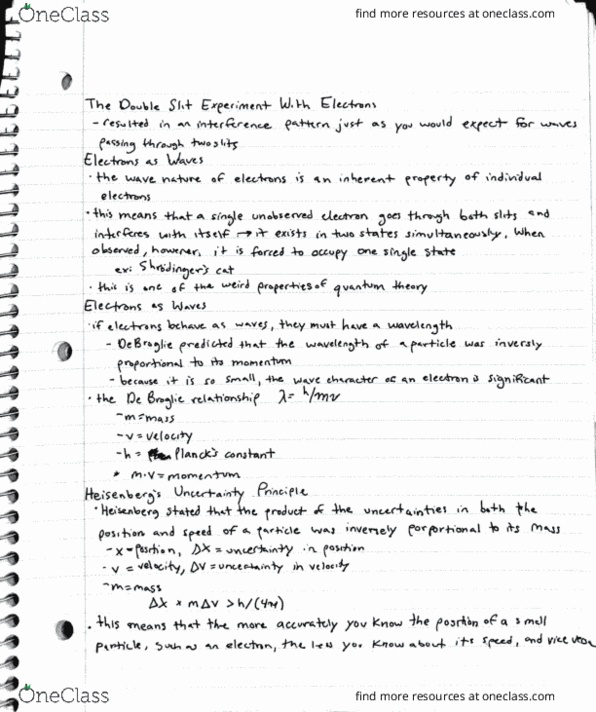 OneClass
find more resources at oneclass.com
The Double Slit Experiment With Electrons
- resulted in an interference pattern just as you would expect for waves
passing through two slits
Electrons as Waves
• the wave nature of electrons is an inherent property of individual
electrons
• this means that a single unobserved electron goes through both slits and
interferes with itself → it exists in two states simultaneously. When
observed, however, it is forced to occupy one single state
ex: Shrödinger's cat
• this is one of the weird properties of quantum theory
Electrons as Waves
• if electrons behave as waves, they must have a wavelength
- DeBroglie predicted that the wavelength of a particle was inversly
proportional to its momentum
- because it is so small, the wave character of an electron is significant
• the De Broglie relationship λ= h/mv
- m=mass
- v = velocity
- h = Planck's constant
* m·v = momentum
Heisenberg's Uncertainty Principle
• Heisenberg stated that the product of the uncertainties in both the
position and speed of a particle was inversely porportional to its mass
- x = position, Δx = uncertainty in position
- v = velocity, ΔV = uncertainty in velocity
- m=mass
Δx × mΔv > h/(4π)
• this means that the more accurately you know the position of a small
particle, such as an electron, the less you know about its speed, and vice versa
OneClass
find more resources at oneclass.com